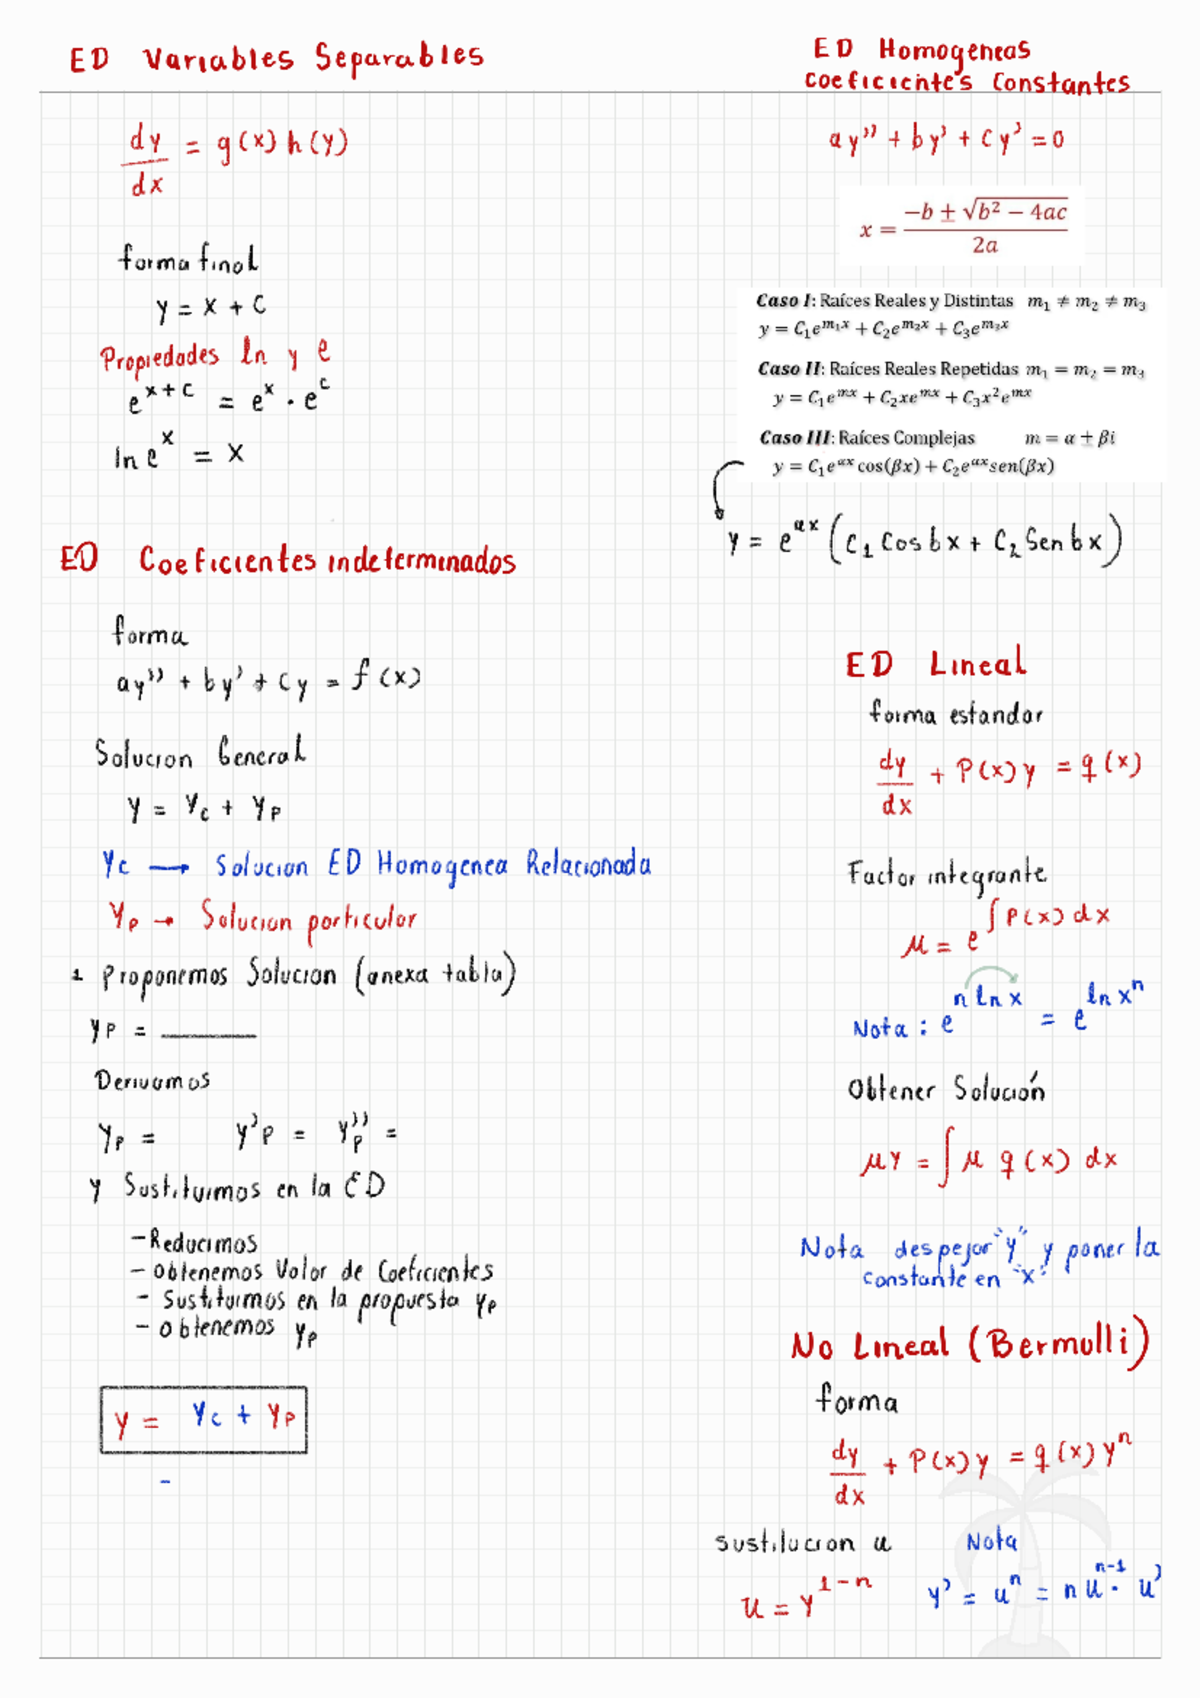 ED Variables Separables
dy/dx = g(x) h(y)
forma final
y = x + c
Propiedades ln y e
e^{x+c} = e^x · e^c
ln e^x = x
ED Coeficientes indeterminados
forma
ay'' + by' + cy = f(x)
Solucion General
y = yc + yp
yc → Solucion ED Homogenea Relacionada
yp → Solucion particular
1 Proponemos Solucion (anexa tabla)
yp = ______
Derivamos
yp =   y'p =   y''p =
y Sustituimos en la ED
- Reducimos
- obtenemos Valor de Coeficientes
- Sustituimos en la propuesta yp
- obtenemos yp
y = yc + yp
-
ED Homogeneas
coeficientes Constantes
ay'' + by' + cy' = 0
x = (-b ± √(b² − 4ac)) / 2a
Caso I: Raíces Reales y Distintas m₁ ≠ m₂ ≠ m₃
y = C₁e^{m₁x} + C₂e^{m₂x} + C₃e^{m₃x}
Caso II: Raíces Reales Repetidas m₁ = m₂ = m₃
y = C₁e^{mx} + C₂xe^{mx} + C₃x²e^{mx}
Caso III: Raíces Complejas m = α ± βi
y = C₁e^{αx} cos(βx) + C₂e^{αx} sen(βx)
y = e^{ax} (C₁ Cos bx + C₂ Sen bx)
ED Lineal
forma estandar
dy/dx + P(x) y = q(x)
Factor integrante
μ = e^{∫P(x) dx}
Nota: e^{n ln x} = e^{ln x^n}
Obtener Solución
μy = ∫ μ q(x) dx
Nota despejar "y" y poner la
constante en "x"
No Lineal (Bermulli)
forma
dy/dx + P(x) y = q(x) y^n
sustitucion u   Nota
u = y^{1-n}   y' = u^n = n u^{n-1} · u'